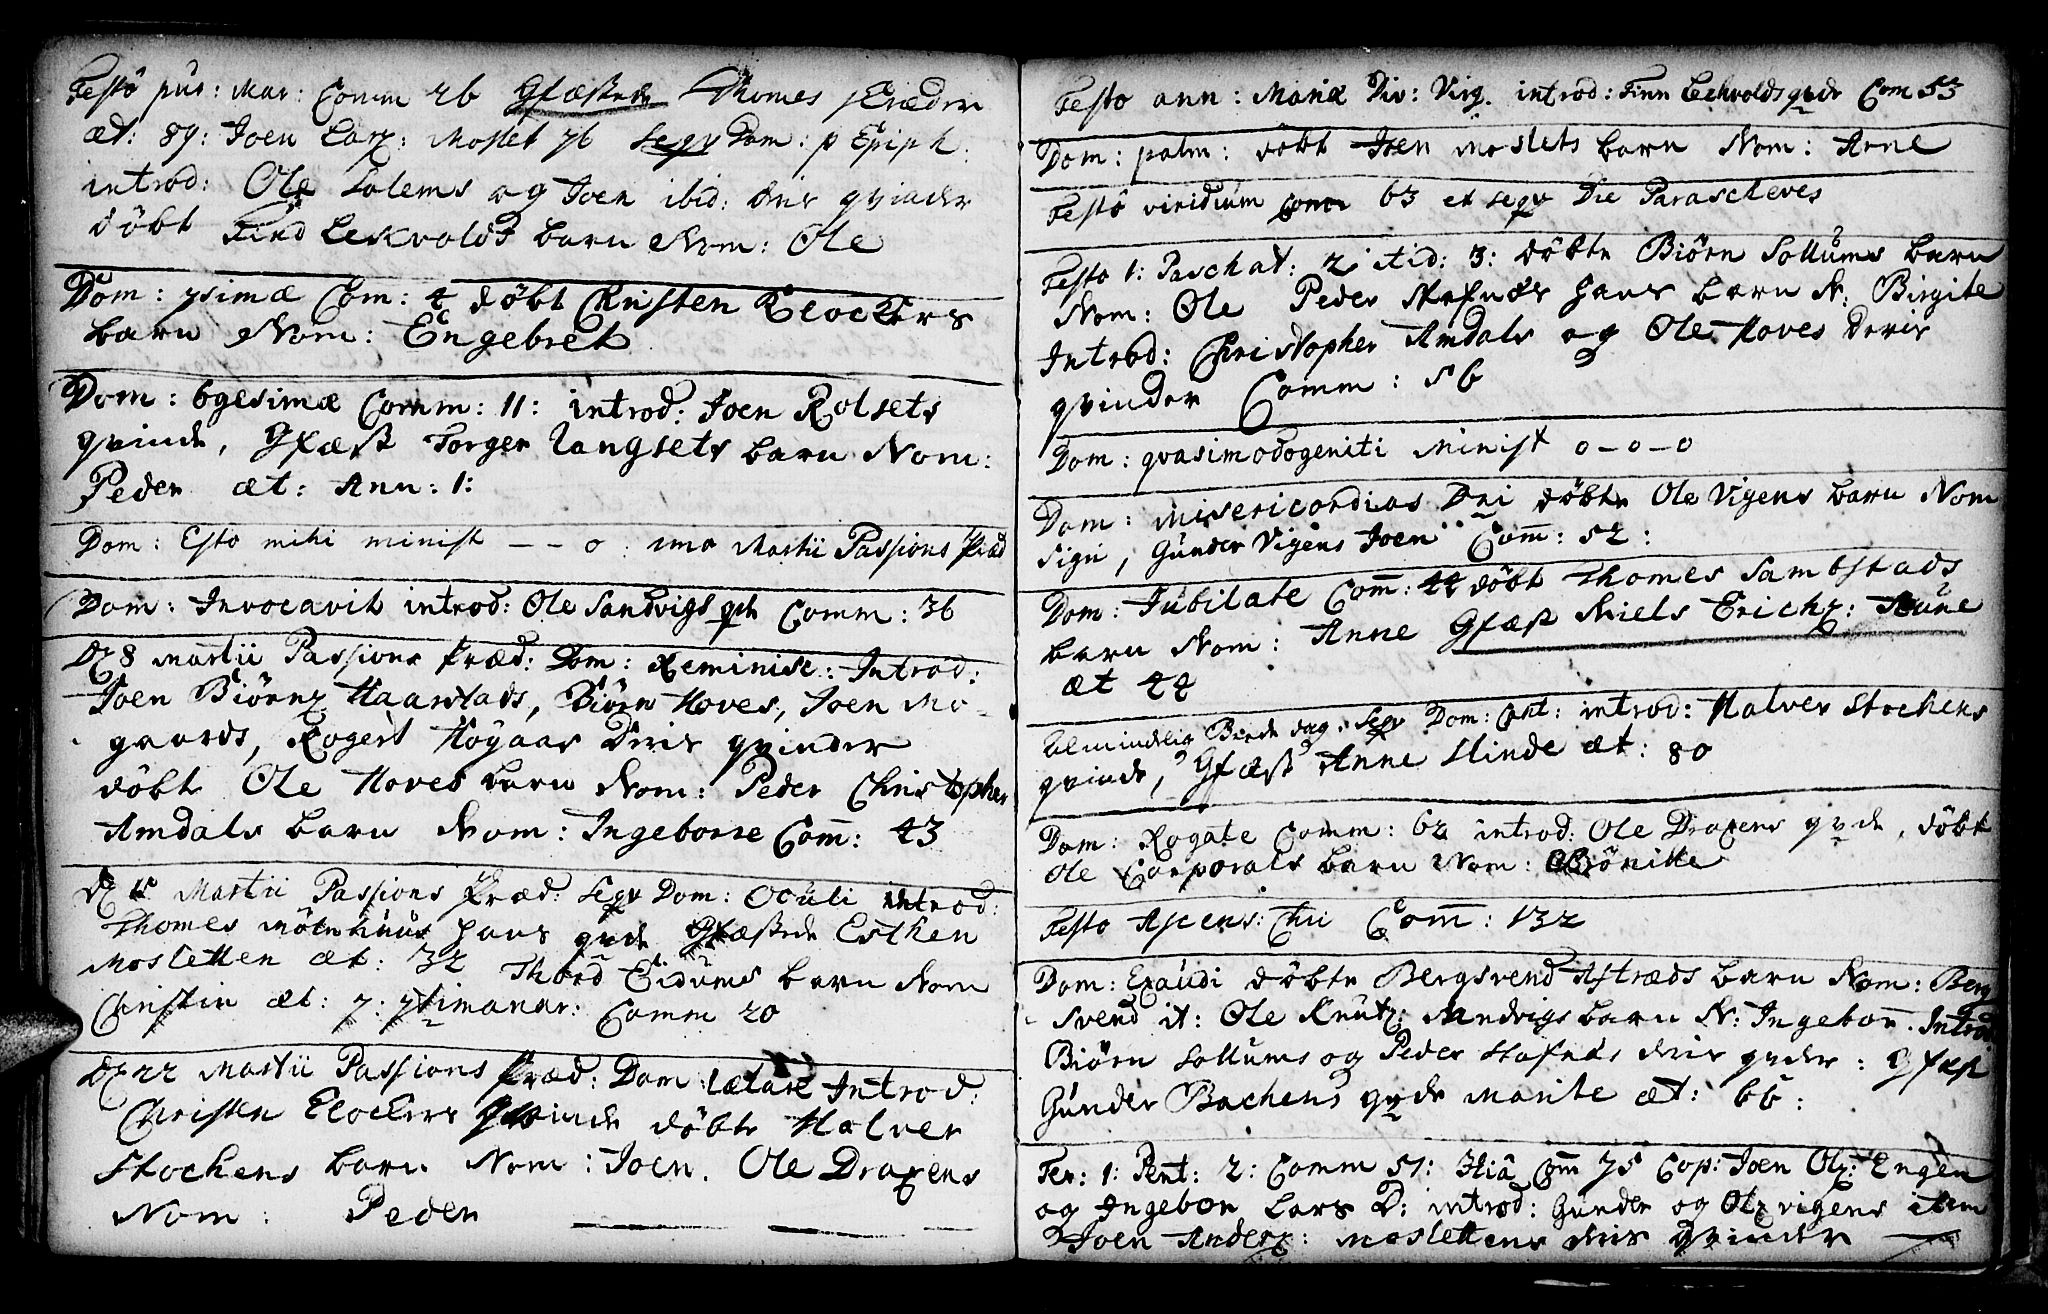 Festo pur: Mar: Comm 26 Gfæstede Thomes
æt: 89: Joen Larz: Moslet 76 Seqv Dom: p Epiph:
introd: Ole Solems og Joen ibid: deris qvinder
döbt Find Lekvolds barn Nom: Ole
Dom: 7simæ Com: 4 döbt Christen Klockers
barn Nom: Engebret
Dom: 6gesimæ Comm: 11: introd: Joen Rolsets
qvinde, Gfæst Torger Langsets barn Nom:
Peder æt: Ann: 1:
Dom: Esto mihi minist – – 0 : 1mo Martii Passions Præd
Dom: Invocavit introd: Ole Sandvigs qde Comm: 36
Dz 8 Martii Passions Præd: Dom: Reminisc: Introd:
Joen Biörnz Haarstads, Biörn Hoves, Joen Mo-
gaards, Rogert Höyaas deris qvinder
döbte Ole Hoves barn Nom: Peder Christopher
Amdals barn Nom: Ingeborre Com: 43
Dz 15 Martii Passions Præd: Seqv Dom: Oculi introd:
Thomes Mölnhuus hans qvde Gfæstede Esther
Mosletten æt: 32 Thord Eidums barn Nom
Christin æt: 7: 7timanar: Comm 20
Dz 22 Martii Passions Præd: Dom: Lætare Introd:
Christen Clockers qvinde döbte Halver
Stochens barn Nom: Joen. Ole Draxens
Nom: Peder
Festo ann: Mariæ Div: Virg. introd: Finn Lechvolds qvde Com 53
Dom: palm: döbt Joen Moslets barn Nom: Arne
Festo viridium Comm 63 et seqv Die Parascheves
Festo 1: Paschat: 2 itid: 3: döbte Biörn Sollums barn
Nom: Ole Peder Stafnes hans barn N: Birgite
Introd: Christopher Amdals og Ole Hoves deris
qvinder Comm: 56
Dom: qvasimodogeniti Minist 0–0–0
Dom: Misericordias Dni döbte Ole Vigens barn Nom
Signi, Gunder Vigens Joen Com: 52:
Dom: Jubilate Com: 44 döbt Thomes Sambstads
barn Nom: Anne Gfæst Niels Erichz: Aune
æt 44
Almindelig Bede dag. Seqv Dom: Cant: introd: Halver Stochens
qvinde, Gfæst Anne Hinde æt: 80
Dom: Rogate Comm: 62 introd: Ole Draxens qvde, döbt
Ole Corporals barn Nom:
Festo Ascens: Chi Com: 132
Dom: Exaudi döbte Bergsvend Astræds barn Nom: Berg
svend it: Ole Knutz: barn N: Ingebor. Introd
Biörn Sollums og Peder Stafnes deris qvder: Gfæst
Gunder Bachens qvde Marite æt: 66:
Fer: 1: Pent: 2: Comm 51: 3tiâ Com 75 Cop: Joen Olz: Engen
og Ingebor Lars D: introd: Gunder og Olz Vigens item
Joen Andersz: Moslettens deris qvinder